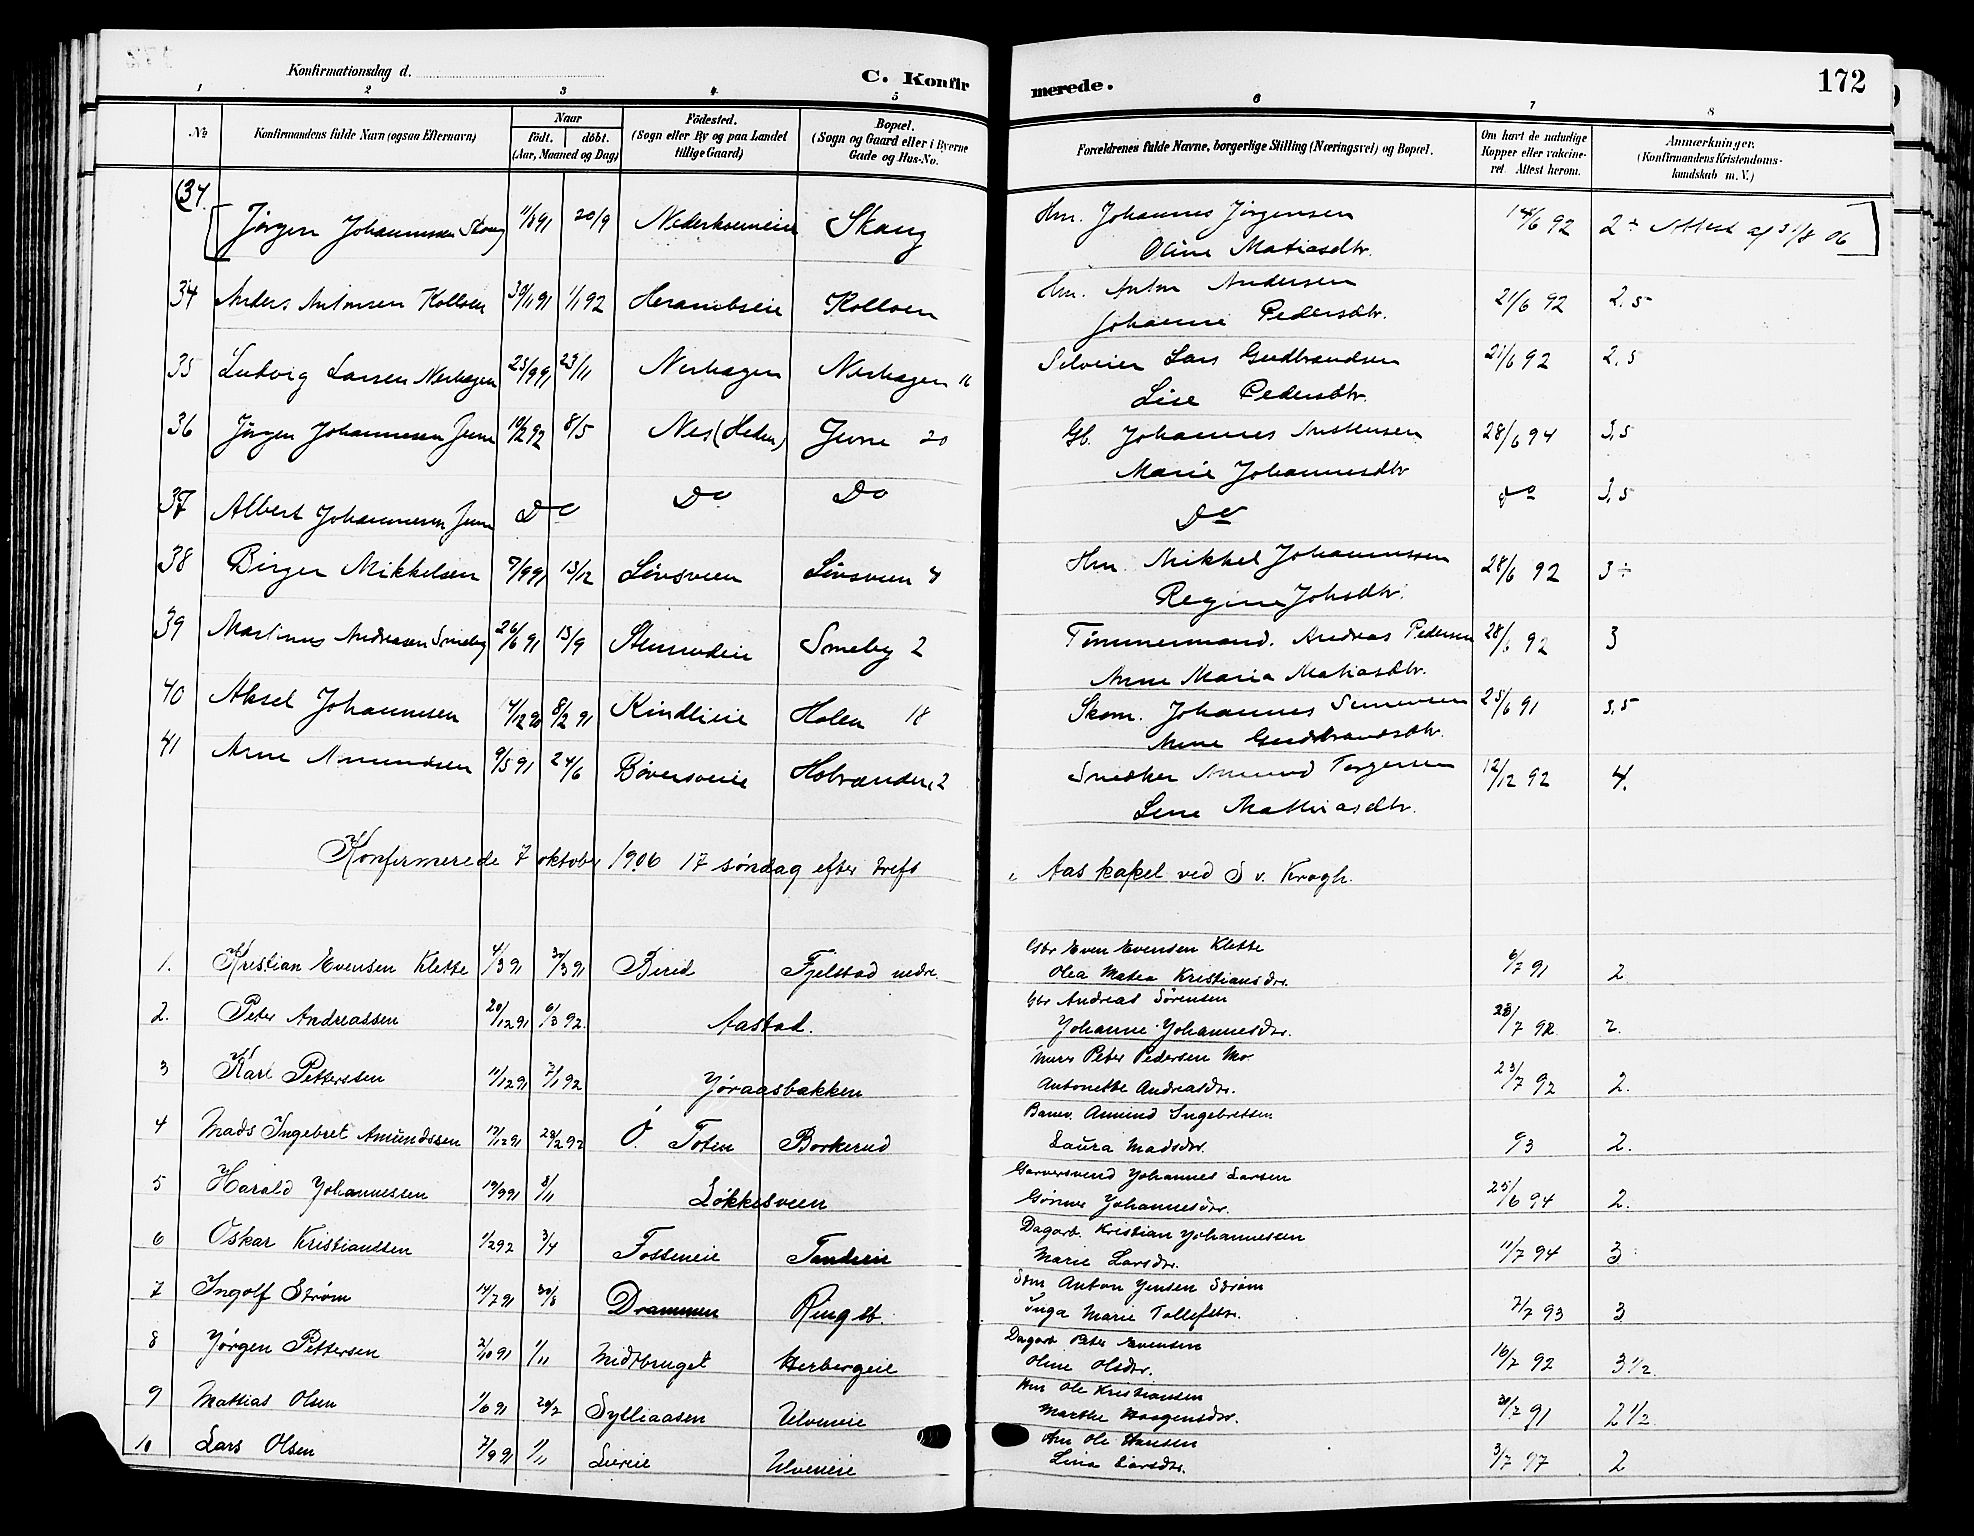 172
Konfirmationsdag d.
C. Konfir
merede.
1 2 3 4 5 6 7 8
No
Konfirmandens fulde Navn (ogsaa Efternavn)
Naar
født. døbt.
(Aar, Maaned og Dag)
Fødested.
(Sogn eller By og paa Landet
tillige Gaard)
Bopæl.
(Sogn og Gaard eller i Byerne
Gade og Hus-No.
Forældrenes fulde Navne, borgerlige Stilling (Næringsvei) og Bopæl.
Om havt de naturlige
Kopper eller vakcine-
ret. Attest herom.
Anmærkninger.
(Konfirmandens Kristendoms-
kundskab m. V.)
(34.
Jørgen Johannessen Skaug 11/8 91 20/9 Skaug Hm. Johannes Jørgensen 14/6 92 2÷ Attest af 31/8 06
Oline Matiasdtr.
34 Anders Antonsen Kolloen 30/11 91 1/1 92 Kolloen Hm. Anton Andersen 21/6 92 2,5
Johanne Pedersdtr.
35 Ludvig Larsen Nerhagen 25/9 91 29/11 Nerhagen Nerhagen 16 Selveier Lars Gudbrandsen 21/6 92 2,5
Lise Pedersdtr.
36 Jørgen Johannesen Jevne 19/2 92 8/5 Nes (Hedm) Jevne 20 Gb. Johannes 28/6 94 3,5
Marie Johannesdtr
37 Albert Johannesen Jevne Do Do Do Do do 3,5
38 Birger Mikkelsen 7/9 91 13/12 Linsveen Linsveen 4 Hm. Mikkel Johannessen 28/6 92 3÷
Regine Johsdtr.
39 Martinus Andreasen Smeby 26/6 91 13/9 Smeby 2 Tømmermand. Andreas Pedersen 28/6 92 3
Anne Maria Matiasdtr.
40 Aksel Johannesen 14/12 90 8/2 91 Kindlieie Holen 18 Skom. Johannes Simensen 25/6 91 3,5
Anne Gudbrandsdtr.
41 Arne Amundsen 9/5 91 24/6 Bøversveie 2 Snedker Amund Torgersen 12/12 92 4.
Lene Mathiasdtr.
Konfirmerede 7 oktober 1906 17 søndag efter trefs i Aas kapel ved S v. Krogh.
1. Kristian Evensen Klette 4/3 91 30/3 91 Birid Fjelstad nedre Gbr Even Evensen Klette 6/7 91 2
Olea Matea Kristiansdr.
2. Peter Andreassen 20/12 91 6/3 92. Aastad. Gbr Andreas Sørensen 28/7 92 2.
Johanne Johannesdr.
3 Karl Petterssen 11/12 91 7/1 92 Jøraasbakken Murer Peter Pedersen Mo 23/7 92 2.
Antonette Andreasdr.
4 Mads Ingebret Amundssen 12/12 91 28/2 92 Ø. Toten Borkerud Banev. Amund Ingebretsen 93 2.
Laura Madsdr.
5 Harald Johannessen 19/9 91 8/11 Løkkesveen Garversvend Johannes Larsen 25/6 94 2.
Gunner Johannesdr.
6 Oskar Kristianssen 1/2 92 3/4 Fosseneie Tandeie Dagarb. Kristian Johannessen 11/7 94 3
Marie Larsdr.
7 Ingolf Strøm 14/7 91 30/8 Drammen Ringsb. Skm Anton Jensen Strøm 7/7 93 3
Inga Marie Tollefsdr.
8 Jørgen Pettersen 2/10 91 1/11 Midtbruget Herbergeie Dagarb Peter Evensen 16/7 92 3 1/2.
Oline Olsdr.
9 Mattias Olsen 1/6 91 20/7 Sylliaasen Ulveneie Hm Ole Kristiansen 30/7 91 2 1/2
Marthe Haagensdr.
10 Lars Olsen 7/9 91 1/11 Liereie Ulveneie Hm Ole Hansen 3/7 97 2
Lina Larsdr.